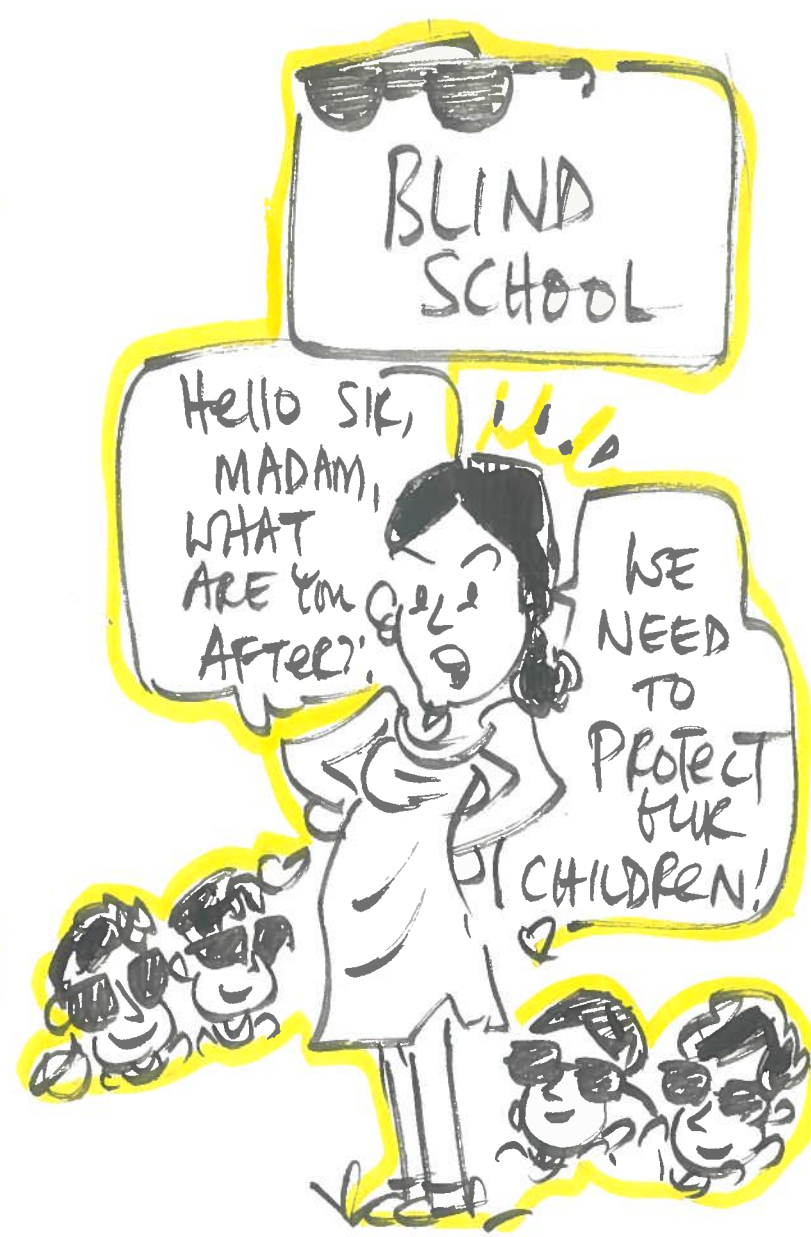 BLIND
SCHOOL
Hello SIR,
MADAM,
WHAT
ARE You
AFTeR?!
WE
NEED
TO
PROTecT
OUR
CHILDReN!